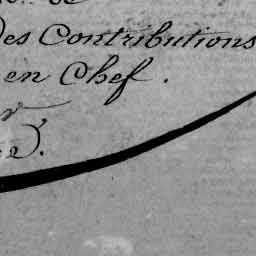 des Contributions
en Chef.